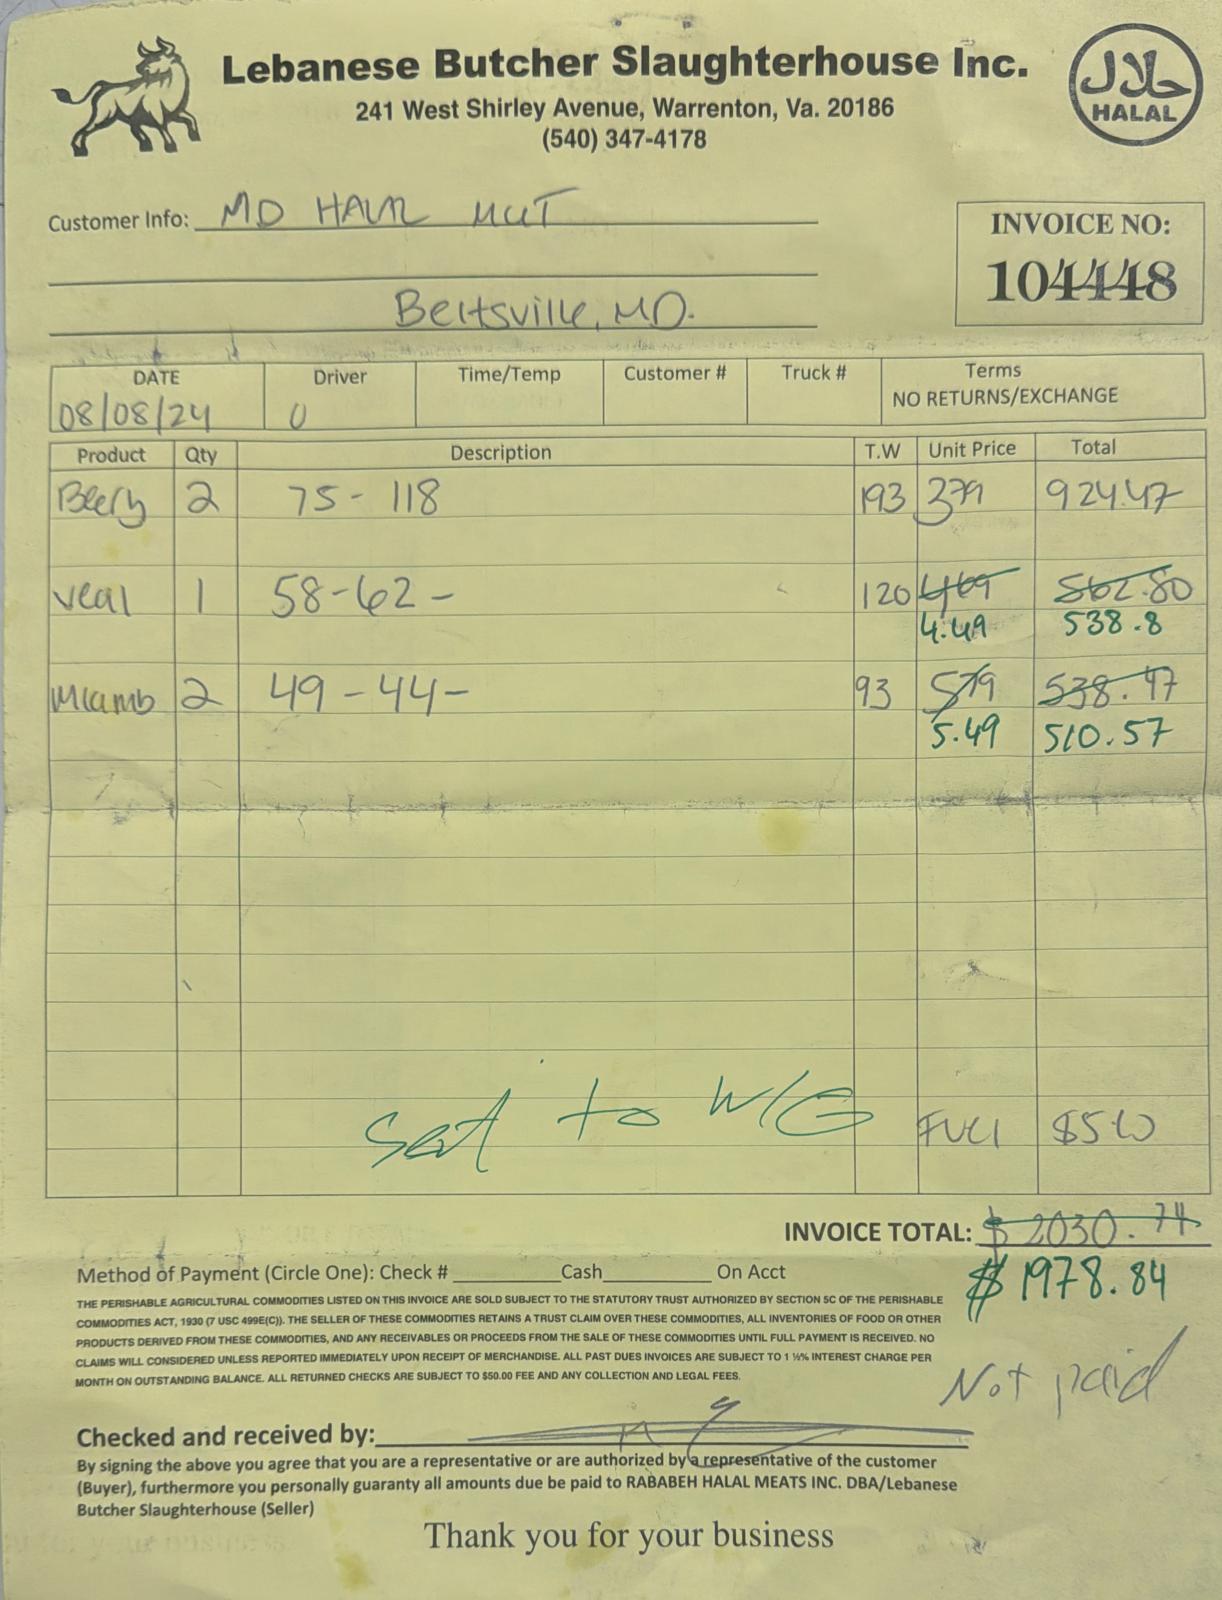 Lebanese Butcher Slaughterhouse Inc.
241 West Shirley Avenue, Warrenton, Va. 20186
(540) 347-4178
حلال
HALAL
Customer Info: MD HALAL
Beltsville, MD.
INVOICE NO:
104448
DATE Driver Time/Temp Customer # Truck # Terms
08/08/24 0 NO RETURNS/EXCHANGE
Product Qty Description T.W Unit Price Total
2 75 - 118 193 379 924.47
veal 1 58-62 - 120 469 562.80
4.49 538.8
Mlamb 2 49 - 44 - 93 579 538.47
5.49 510.57
to W/G
$5.00
INVOICE TOTAL: $ 2030.74
$ 1978.84
Method of Payment (Circle One): Check # ________ Cash________ On Acct
THE PERISHABLE AGRICULTURAL COMMODITIES LISTED ON THIS INVOICE ARE SOLD SUBJECT TO THE STATUTORY TRUST AUTHORIZED BY SECTION 5C OF THE PERISHABLE
COMMODITIES ACT, 1930 (7 USC 499E(C)). THE SELLER OF THESE COMMODITIES RETAINS A TRUST CLAIM OVER THESE COMMODITIES, ALL INVENTORIES OF FOOD OR OTHER
PRODUCTS DERIVED FROM THESE COMMODITIES, AND ANY RECEIVABLES OR PROCEEDS FROM THE SALE OF THESE COMMODITIES UNTIL FULL PAYMENT IS RECEIVED. NO
CLAIMS WILL CONSIDERED UNLESS REPORTED IMMEDIATELY UPON RECEIPT OF MERCHANDISE. ALL PAST DUES INVOICES ARE SUBJECT TO 1 ½% INTEREST CHARGE PER
MONTH ON OUTSTANDING BALANCE. ALL RETURNED CHECKS ARE SUBJECT TO $50.00 FEE AND ANY COLLECTION AND LEGAL FEES.
Not paid
Checked and received by:
By signing the above you agree that you are a representative or are authorized by a representative of the customer
(Buyer), furthermore you personally guaranty all amounts due be paid to RABABEH HALAL MEATS INC. DBA/Lebanese
Butcher Slaughterhouse (Seller)
Thank you for your business